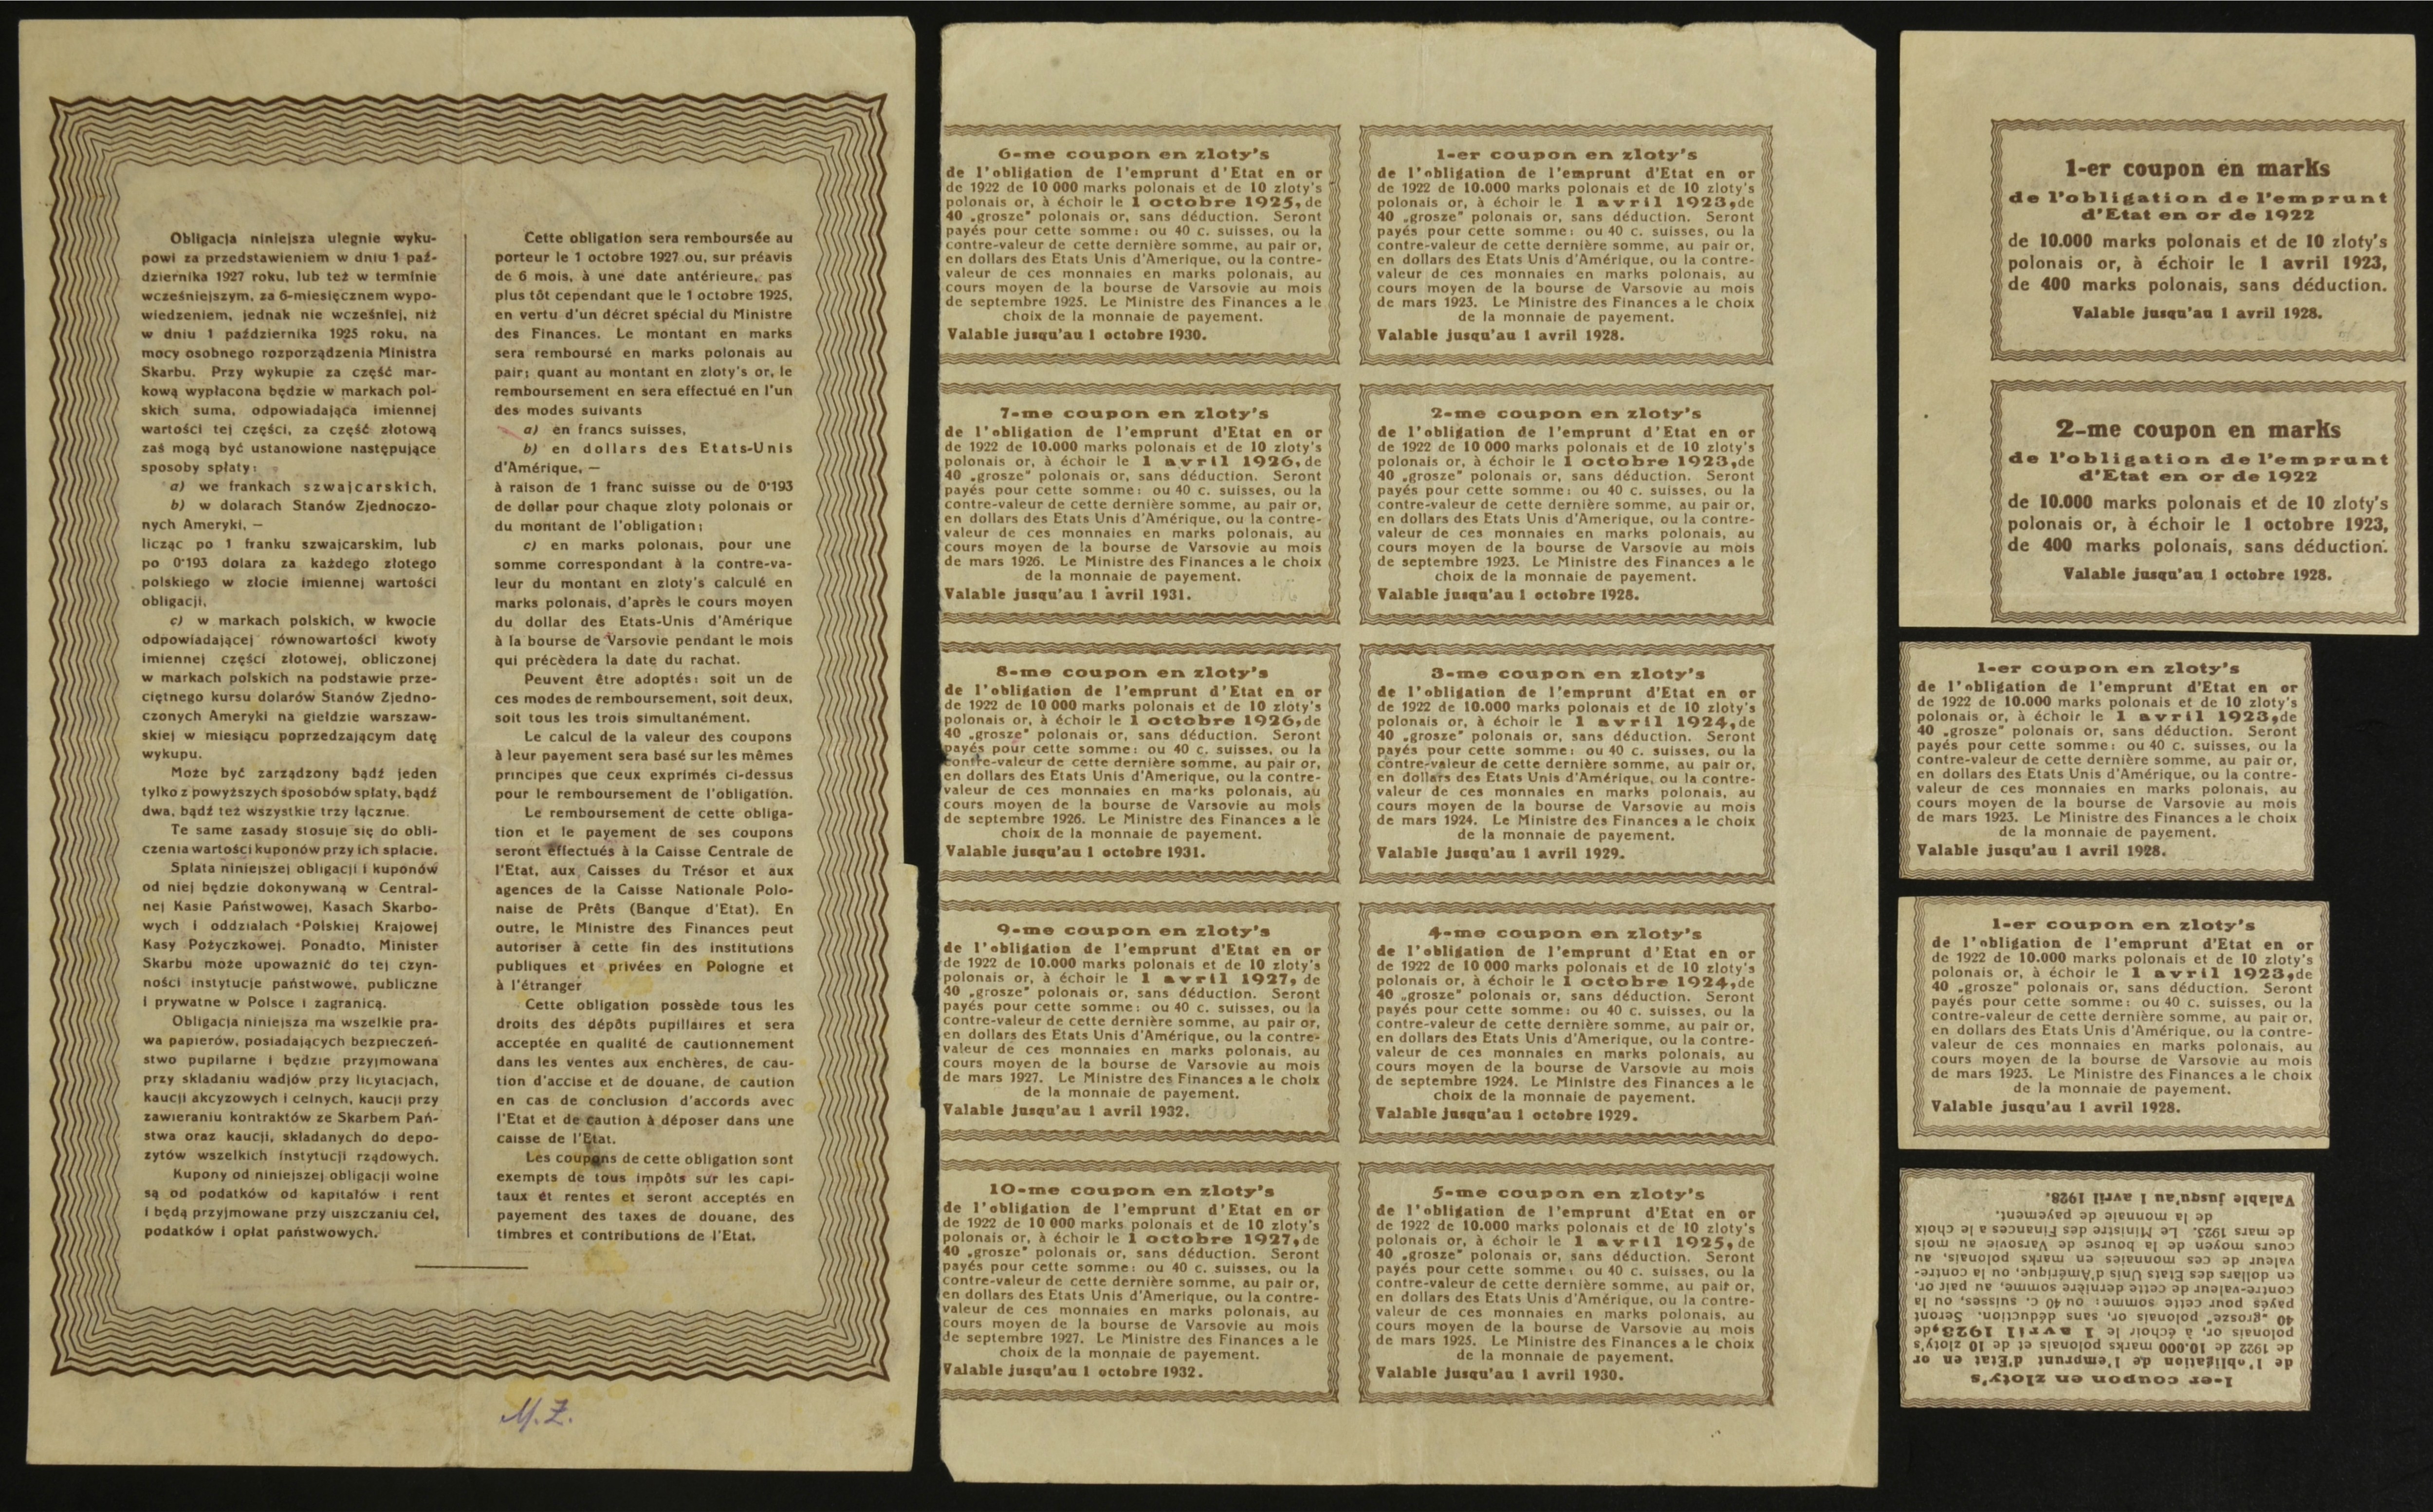 Obligacja niniejsza ulegnie wyku-
powi za przedstawieniem w dniu 1 paź-
dziernika 1927 roku, lub też w terminie
wcześniejszym, za 6-miesięcznem wypo-
wiedzeniem, jednak nie wcześniej, niż
w dniu 1 października 1925 roku, na
mocy osobnego rozporządzenia Ministra
Skarbu. Przy wykupie za część mar-
kową wypłacona będzie w markach pol-
skich suma, odpowiadająca imiennej
wartości tej części, za część złotową
zaś mogą być ustanowione następujące
sposoby spłaty:
a) we frankach szwajcarskich,
b) w dolarach Stanów Zjednoczo-
nych Ameryki, —
licząc po 1 franku szwajcarskim, lub
po 0·193 dolara za każdego złotego
polskiego w złocie imiennej wartości
obligacji,
c) w markach polskich, w kwocie
odpowiadającej równowartości kwoty
imiennej części złotowej, obliczonej
w markach polskich na podstawie prze-
ciętnego kursu dolarów Stanów Zjedno-
czonych Ameryki na giełdzie warszaw-
skiej w miesiącu poprzedzającym datę
wykupu.
Może być zarządzony bądź jeden
tylko z powyższych sposobów spłaty, bądź
dwa, bądź też wszystkie trzy łącznie.
Te same zasady stosuje się do obli-
czenia wartości kuponów przy ich spłacie.
Spłata niniejszej obligacji i kuponów
od niej będzie dokonywaną w Central-
nej Kasie Państwowej, Kasach Skarbo-
wych i oddziałach Polskiej Krajowej
Kasy Pożyczkowej. Ponadto, Minister
Skarbu może upoważnić do tej czyn-
ności instytucje państwowe, publiczne
i prywatne w Polsce i zagranicą.
Obligacja niniejsza ma wszelkie pra-
wa papierów, posiadających bezpieczeń-
stwo pupilarne i będzie przyjmowana
przy składaniu wadjów przy licytacjach,
kaucji akcyzowych i celnych, kaucji przy
zawieraniu kontraktów ze Skarbem Pań-
stwa oraz kaucji, składanych do depo-
zytów wszelkich instytucji rządowych.
Kupony od niniejszej obligacji wolne
są od podatków od kapitałów i rent
i będą przyjmowane przy uiszczaniu ceł,
podatków i opłat państwowych.
Cette obligation sera remboursée au
porteur le 1 octobre 1927 ou, sur préavis
de 6 mois, à une date antérieure, pas
plus tôt cependant que le 1 octobre 1925,
en vertu d'un décret spécial du Ministre
des Finances. Le montant en marks
sera remboursé en marks polonais au
pair; quant au montant en zloty's or, le
remboursement en sera effectué en l'un
des modes suivants
a) en francs suisses,
b) en dollars des Etats-Unis
d'Amérique, —
à raison de 1 franc suisse ou de 0·193
de dollar pour chaque zloty polonais or
du montant de l'obligation;
c) en marks polonais, pour une
somme correspondant à la contre-va-
leur du montant en zloty's calculé en
marks polonais, d'après le cours moyen
du dollar des Etats-Unis d'Amérique
à la bourse de Varsovie pendant le mois
qui précèdera la date du rachat.
Peuvent être adoptés: soit un de
ces modes de remboursement, soit deux,
soit tous les trois simultanément.
Le calcul de la valeur des coupons
à leur payement sera basé sur les mêmes
principes que ceux exprimés ci-dessus
pour le remboursement de l'obligation.
Le remboursement de cette obliga-
tion et le payement de ses coupons
seront effectués à la Caisse Centrale de
l'Etat, aux Caisses du Trésor et aux
agences de la Caisse Nationale Polo-
naise de Prêts (Banque d'Etat). En
outre, le Ministre des Finances peut
autoriser à cette fin des institutions
publiques et privées en Pologne et
à l'étranger
Cette obligation possède tous les
droits des dépôts pupillaires et sera
acceptée en qualité de cautionnement
dans les ventes aux enchères, de cau-
tion d'accise et de douane, de caution
en cas de conclusion d'accords avec
l'Etat et de caution à déposer dans une
caisse de l'Etat.
Les coupons de cette obligation sont
exempts de tous impôts sur les capi-
taux et rentes et seront acceptés en
payement des taxes de douane, des
timbres et contributions de l'Etat.
M. Z.
6-me coupon en zloty's
de l'obligation de l'emprunt d'Etat en or
de 1922 de 10 000 marks polonais et de 10 zloty's
polonais or, à échoir le 1 octobre 1925, de
40 „grosze" polonais or, sans déduction. Seront
payés pour cette somme: ou 40 c. suisses, ou la
contre-valeur de cette dernière somme, au pair or,
en dollars des Etats Unis d'Amerique, ou la contre-
valeur de ces monnaies en marks polonais, au
cours moyen de la bourse de Varsovie au mois
de septembre 1925. Le Ministre des Finances a le
choix de la monnaie de payement.
Valable jusqu'au 1 octobre 1930.
7-me coupon en zloty's
de l'obligation de l'emprunt d'Etat en or
de 1922 de 10.000 marks polonais et de 10 zloty's
polonais or, à échoir le 1 avril 1926, de
40 „grosze" polonais or, sans déduction. Seront
payés pour cette somme: ou 40 c. suisses, ou la
contre-valeur de cette dernière somme, au pair or,
en dollars des Etats Unis d'Amérique, ou la contre-
valeur de ces monnaies en marks polonais, au
cours moyen de la bourse de Varsovie au mois
de mars 1926. Le Ministre des Finances a le choix
de la monnaie de payement.
Valable jusqu'au 1 avril 1931.
8-me coupon en zloty's
de l'obligation de l'emprunt d'Etat en or
de 1922 de 10 000 marks polonais et de 10 zloty's
polonais or, à échoir le 1 octobre 1926, de
40 „grosze" polonais or, sans déduction. Seront
payés pour cette somme: ou 40 c. suisses, ou la
contre-valeur de cette dernière somme, au pair or,
en dollars des Etats Unis d'Amerique, ou la contre-
valeur de ces monnaies en marks polonais, au
cours moyen de la bourse de Varsovie au mois
de septembre 1926. Le Ministre des Finances a le
choix de la monnaie de payement.
Valable jusqu'au 1 octobre 1931.
9-me coupon en zloty's
de l'obligation de l'emprunt d'Etat en or
de 1922 de 10.000 marks polonais et de 10 zloty's
polonais or, à échoir le 1 avril 1927, de
40 „grosze" polonais or, sans déduction. Seront
payés pour cette somme: ou 40 c. suisses, ou la
contre-valeur de cette dernière somme, au pair or,
en dollars des Etats Unis d'Amérique, ou la contre-
valeur de ces monnaies en marks polonais, au
cours moyen de la bourse de Varsovie au mois
de mars 1927. Le Ministre des Finances a le choix
de la monnaie de payement.
Valable jusqu'au 1 avril 1932.
10-me coupon en zloty's
de l'obligation de l'emprunt d'Etat en or
de 1922 de 10 000 marks polonais et de 10 zloty's
polonais or, à échoir le 1 octobre 1927, de
40 „grosze" polonais or, sans déduction. Seront
payés pour cette somme: ou 40 c. suisses, ou la
contre-valeur de cette dernière somme, au pair or,
en dollars des Etats Unis d'Amerique, ou la contre-
valeur de ces monnaies en marks polonais, au
cours moyen de la bourse de Varsovie au mois
de septembre 1927. Le Ministre des Finances a le
choix de la monnaie de payement.
Valable jusqu'au 1 octobre 1932.
1-er coupon en zloty's
de l'obligation de l'emprunt d'Etat en or
de 1922 de 10.000 marks polonais et de 10 zloty's
polonais or, à échoir le 1 avril 1923, de
40 „grosze" polonais or, sans déduction. Seront
payés pour cette somme: ou 40 c. suisses, ou la
contre-valeur de cette dernière somme, au pair or,
en dollars des Etats Unis d'Amérique, ou la contre-
valeur de ces monnaies en marks polonais, au
cours moyen de la bourse de Varsovie au mois
de mars 1923. Le Ministre des Finances a le choix
de la monnaie de payement.
Valable jusqu'au 1 avril 1928.
2-me coupon en zloty's
de l'obligation de l'emprunt d'Etat en or
de 1922 de 10 000 marks polonais et de 10 zloty's
polonais or, à échoir le 1 octobre 1923, de
40 „grosze" polonais or, sans déduction. Seront
payés pour cette somme: ou 40 c. suisses, ou la
contre-valeur de cette dernière somme, au pair or,
en dollars des Etats Unis d'Amerique, ou la contre-
valeur de ces monnaies en marks polonais, au
cours moyen de la bourse de Varsovie au mois
de septembre 1923. Le Ministre des Finances a le
choix de la monnaie de payement.
Valable jusqu'au 1 octobre 1928.
3-me coupon en zloty's
de l'obligation de l'emprunt d'Etat en or
de 1922 de 10.000 marks polonais et de 10 zloty's
polonais or, à échoir le 1 avril 1924, de
40 „grosze" polonais or, sans déduction. Seront
payés pour cette somme: ou 40 c. suisses, ou la
contre-valeur de cette dernière somme, au pair or,
en dollars des Etats Unis d'Amérique, ou la contre-
valeur de ces monnaies en marks polonais, au
cours moyen de la bourse de Varsovie au mois
de mars 1924. Le Ministre des Finances a le choix
de la monnaie de payement.
Valable jusqu'au 1 avril 1929.
4-me coupon en zloty's
de l'obligation de l'emprunt d'Etat en or
de 1922 de 10 000 marks polonais et de 10 zloty's
polonais or, à échoir le 1 octobre 1924, de
40 „grosze" polonais or, sans déduction. Seront
payés pour cette somme: ou 40 c. suisses, ou la
contre-valeur de cette dernière somme, au pair or,
en dollars des Etats Unis d'Amerique, ou la contre-
valeur de ces monnaies en marks polonais, au
cours moyen de la bourse de Varsovie au mois
de septembre 1924. Le Ministre des Finances a le
choix de la monnaie de payement.
Valable jusqu'au 1 octobre 1929.
5-me coupon en zloty's
de l'obligation de l'emprunt d'Etat en or
de 1922 de 10.000 marks polonais et de 10 zloty's
polonais or, à échoir le 1 avril 1925, de
40 „grosze" polonais or, sans déduction. Seront
payés pour cette somme: ou 40 c. suisses, ou la
contre-valeur de cette dernière somme, au pair or,
en dollars des Etats Unis d'Amérique, ou la contre-
valeur de ces monnaies en marks polonais, au
cours moyen de la bourse de Varsovie au mois
de mars 1925. Le Ministre des Finances a le choix
de la monnaie de payement.
Valable jusqu'au 1 avril 1930.
1-er coupon en marks
de l'obligation de l'emprunt
d'Etat en or de 1922
de 10.000 marks polonais et de 10 zloty's
polonais or, à échoir le 1 avril 1923,
de 400 marks polonais, sans déduction.
Valable jusqu'au 1 avril 1928.
2-me coupon en marks
de l'obligation de l'emprunt
d'Etat en or de 1922
de 10.000 marks polonais et de 10 zloty's
polonais or, à échoir le 1 octobre 1923,
de 400 marks polonais, sans déduction.
Valable jusqu'au 1 octobre 1928.
1-er coupon en zloty's
de l'obligation de l'emprunt d'Etat en or
de 1922 de 10.000 marks polonais et de 10 zloty's
polonais or, à échoir le 1 avril 1923, de
40 „grosze" polonais or, sans déduction. Seront
payés pour cette somme: ou 40 c. suisses, ou la
contre-valeur de cette dernière somme, au pair or,
en dollars des Etats Unis d'Amérique, ou la contre-
valeur de ces monnaies en marks polonais, au
cours moyen de la bourse de Varsovie au mois
de mars 1923. Le Ministre des Finances a le choix
de la monnaie de payement.
Valable jusqu'au 1 avril 1928.
1-er coupon en zloty's
de l'obligation de l'emprunt d'Etat en or
de 1922 de 10.000 marks polonais et de 10 zloty's
polonais or, à échoir le 1 avril 1923, de
40 „grosze" polonais or, sans déduction. Seront
payés pour cette somme: ou 40 c. suisses, ou la
contre-valeur de cette dernière somme, au pair or,
en dollars des Etats Unis d'Amérique, ou la contre-
valeur de ces monnaies en marks polonais, au
cours moyen de la bourse de Varsovie au mois
de mars 1923. Le Ministre des Finances a le choix
de la monnaie de payement.
Valable jusqu'au 1 avril 1928.
1-er coupon en zloty's
de l'obligation de l'emprunt d'Etat en or
de 1922 de 10.000 marks polonais et de 10 zloty's
polonais or, à échoir le 1 avril 1923, de
40 „grosze" polonais or, sans déduction. Seront
payés pour cette somme: ou 40 c. suisses, ou la
contre-valeur de cette dernière somme, au pair or,
en dollars des Etats Unis d'Amérique, ou la contre-
valeur de ces monnaies en marks polonais, au
cours moyen de la bourse de Varsovie au mois
de mars 1923. Le Ministre des Finances a le choix
de la monnaie de payement.
Valable jusqu'au 1 avril 1928.